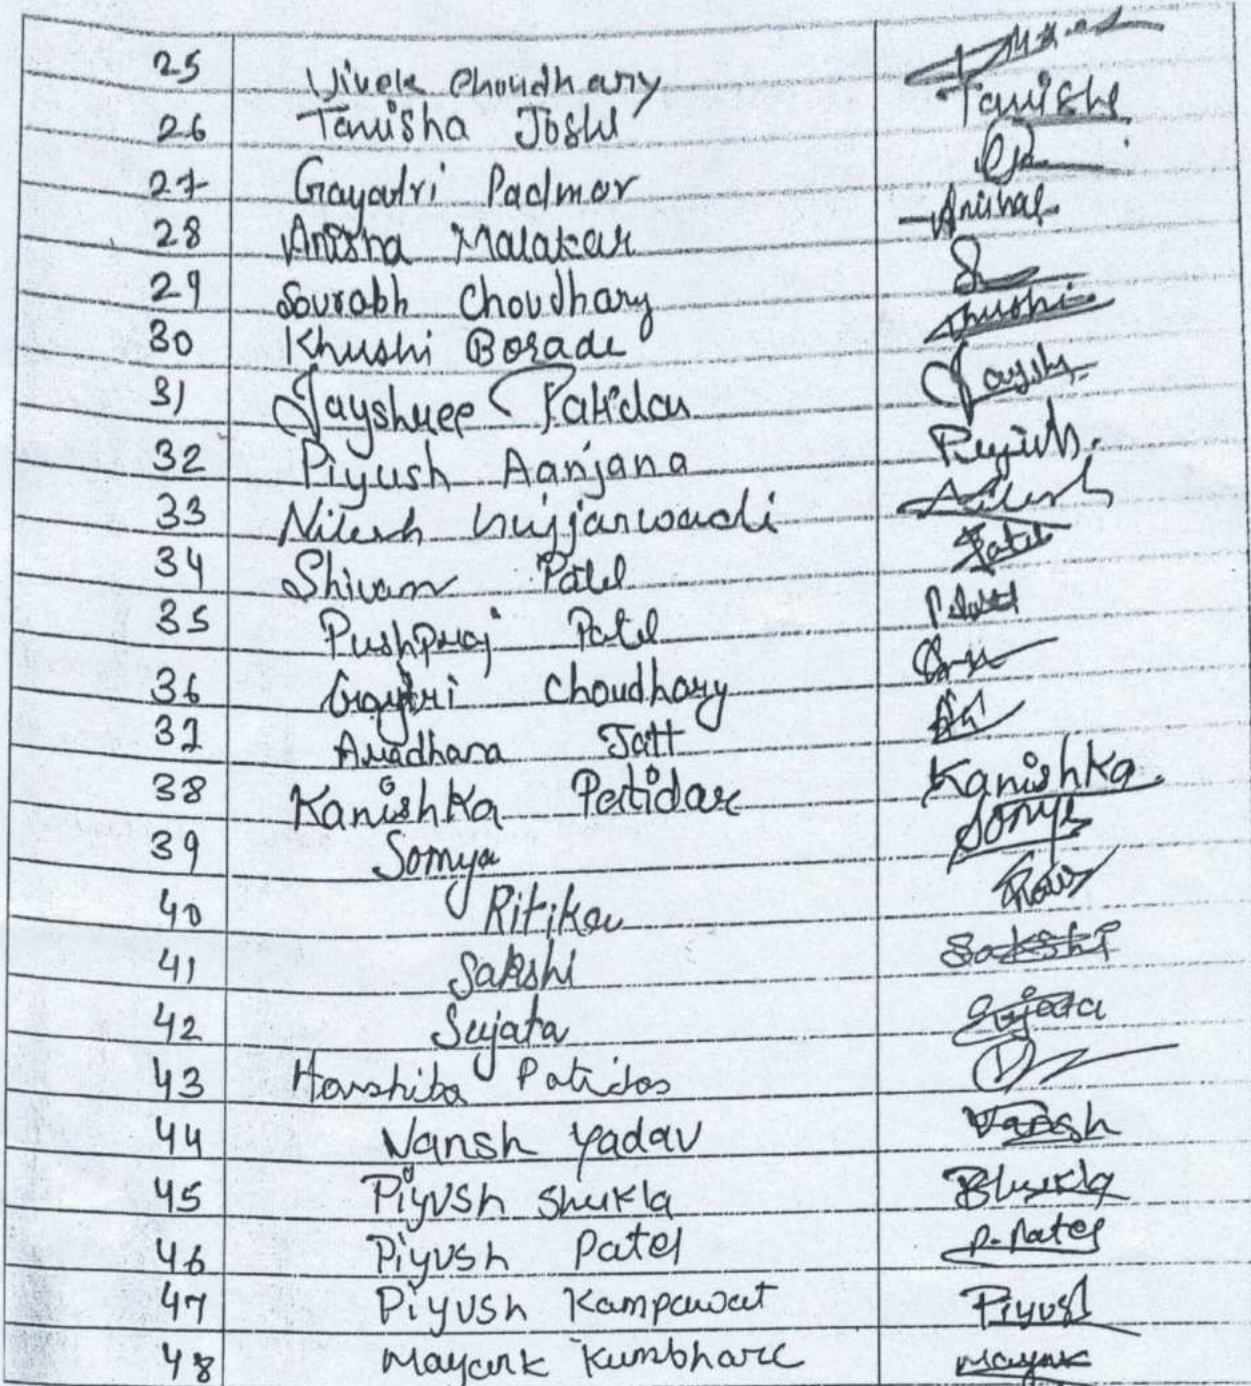 25 Vivek Choudhary
26 Tanisha Joshi Tanishe
27 Gayatri Padmar
28 Anisha Malakar Anishal
29 Sourabh Choudhary
30 Khushi Borade Khushi
31 Jayshree Patidar Jaysh
32 Piyush Aanjana Piyush.
33 Nilesh Gujjarwadi Nilesh
34 Shivam Patel Patel
35 Pushpraj Patel
36 Gaytri Choudhary
37 Aradhana Jatt
38 Kanishka Patidar Kanishka
39 Somya Somya
40 Ritika
41 Sakshi Sakshi
42 Sujata Sujata
43 Harshita Patidar
44 Vansh Yadav Vansh
45 Piyush Shukla Shukla
46 Piyush Patel P. Patel
47 Piyush Kampawat Piyush
48 Mayank Kumbhare Mayank